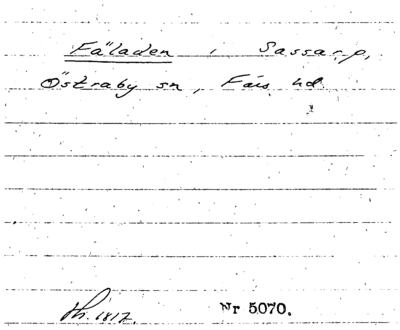 Fäladen i Sassarp,
Östraby sn, Färs hd.
Th. 1817. Nr 5070.